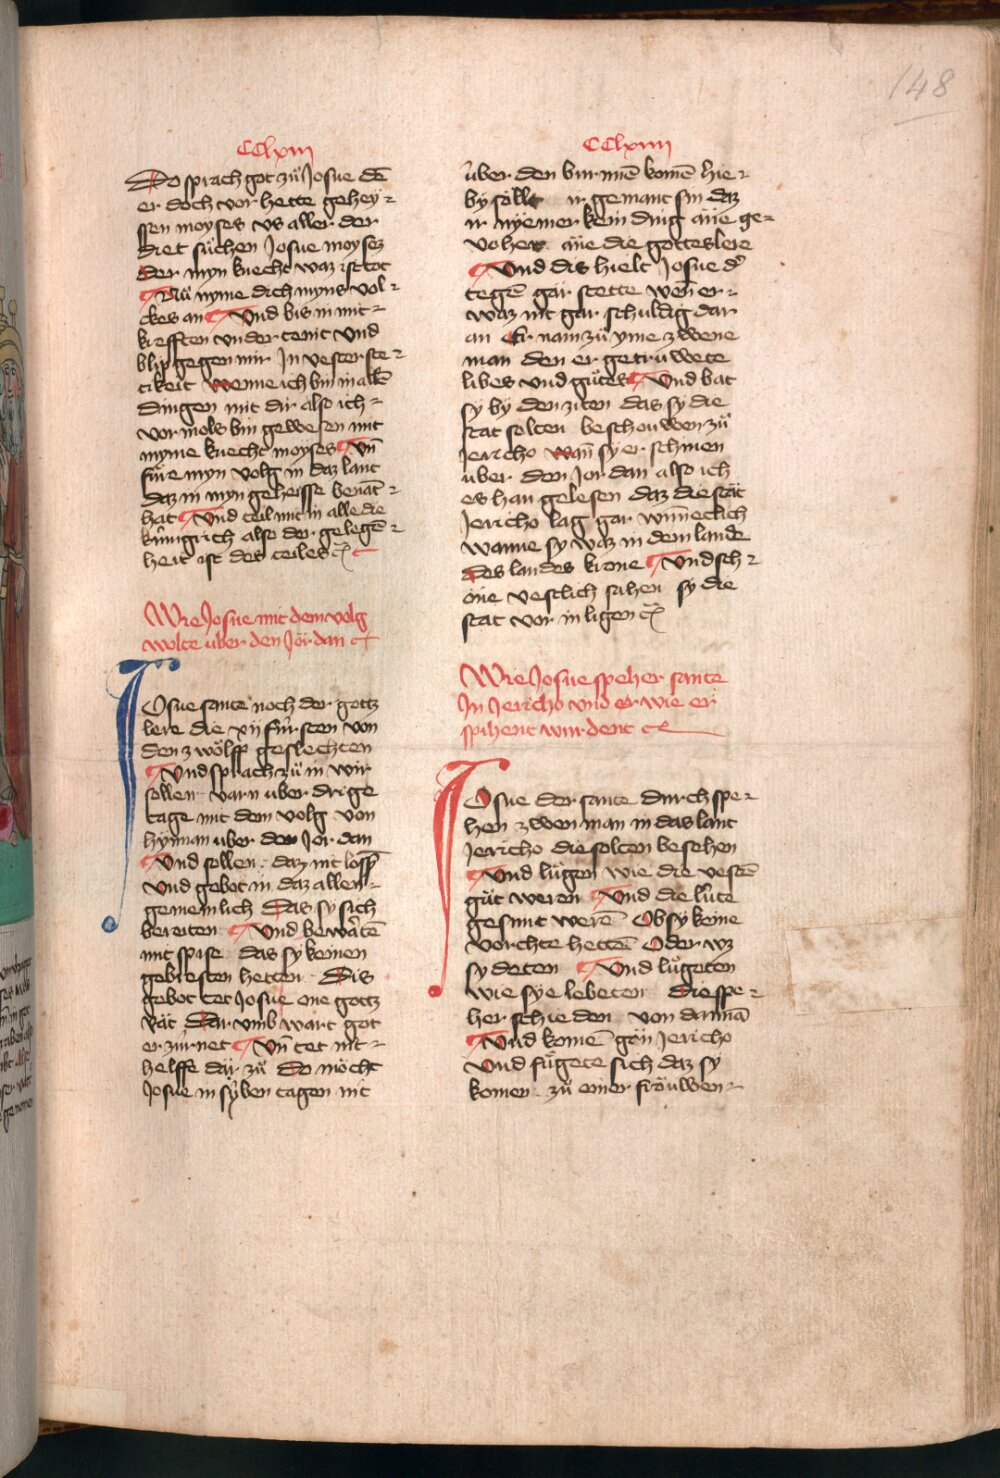 148
CClxiii
Do sprach got zuͦ Josue dē
er doch vor hette gehey⸗
ssen moyses vs aller der
diet suͤchen Josue moyses
der myn knecht waz ist tot
Nuͦ nyme dich myns vol⸗
ckes an Vnd bis in mit⸗
krefften vnder tenit vnd
blip gegen mir In vester ste⸗
tikeit wenne ich bin in allē
dingen mit dir also ich⸗
vor mols bin gewesen mit
myme knecht moyses Vn̄
fuͤre myn volg in daz lant
daz in myn geheisse benāt⸗
hat Vnd teil mit in alle die
kuͤnigrich also der gelegē⸗
heit ist des teiles
Wie Josue mit dem volg
wolte uber den Jordan
Josue sante noch der gottz
lere die xii fuͤrsten von
den zwoͤlff geslechten
Vnd sprach zuͦ in wir
sollen varn uber drige
tage mit dem volg von
hynnan uber den Jordan
Vnd sollen daz nit lossē
Vnd gebot in daz allen⸗
gemeinlich Das sy sich
bereiten Vnd bewartē
mit spise das sy keinen
gebresten hetten Dis
gebot tet Josue one gottz
Rat Dar vmb wart got
erzuͤrnet Vn̄ tet nit⸗
helffe dar zuͦ Do moͤcht
Josue in syben tagen nit
CClxiiii
uͤber den burnnē komē hie⸗
by soͤllt ir gemant sin daz
ir nyemer kein ding ane ge⸗
vohet ane die gottes lere
Vnd dis hielt Josue der
tegē gar stette wen̄ er⸗
waz nit gar schuldig dar
an Er nam zuͦ yme zwene
man den er getruwete
libes vnd guͤtes Vnd bat
sy by den ziten das sy die
stat solten beschouwen zuͦ
Jericho wan̄ sy er schinen
uͤber den Jordan also ich
es han gelesen daz die stat
Jericho lag gar wun̄eclich
wanne sy waz in dem lande
des landes krone Vnd sch⸗
one vestlich sahen sy die
stat vor in ligen
Wie Josue speher sante
In Jericho vnd er wie er
spihent wurdent
Josue der sante durch spe⸗
hen zwen man in das lant
Jericho die solten besehen
Vnd luͦgen wie die vestē
guͦt weren Vnd die luͤte
gesint werē Ob sy keine
vorchte hettē Oder wz
sy deten Vnd luͦgeten
wie sy e lebeten Die spe⸗
her schieden von dannā
Vnd komē goͤn Jericho
Vnd fuͤgete sich daz sy
komen zuͦ einer froͤuwen⸗